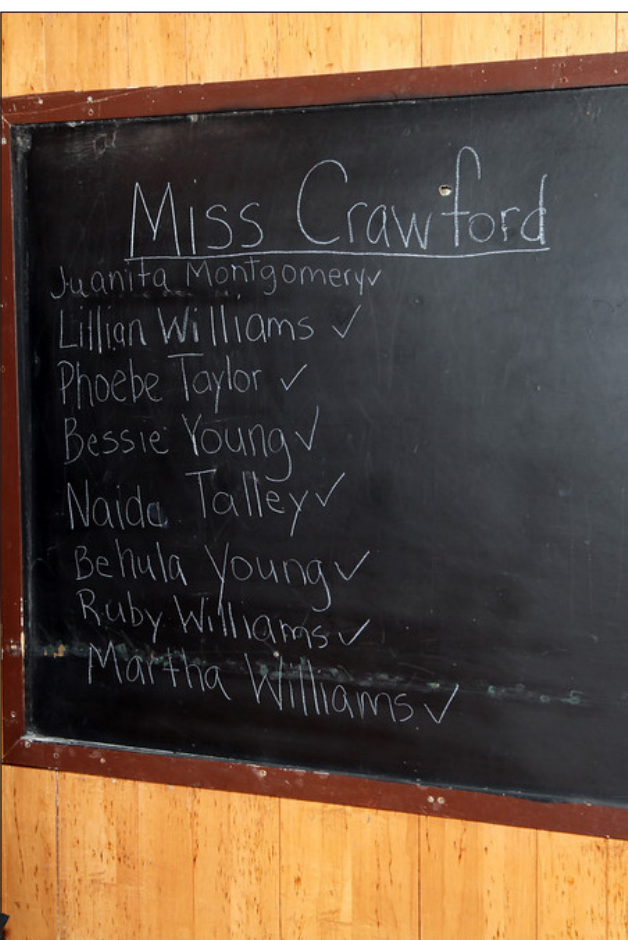 Miss Crawford
Juanita Montgomery✓
Lillian Williams ✓
Phoebe Taylor ✓
Bessie Young✓
Naida Talley✓
Behula Young✓
Ruby Williams✓
Martha Williams✓